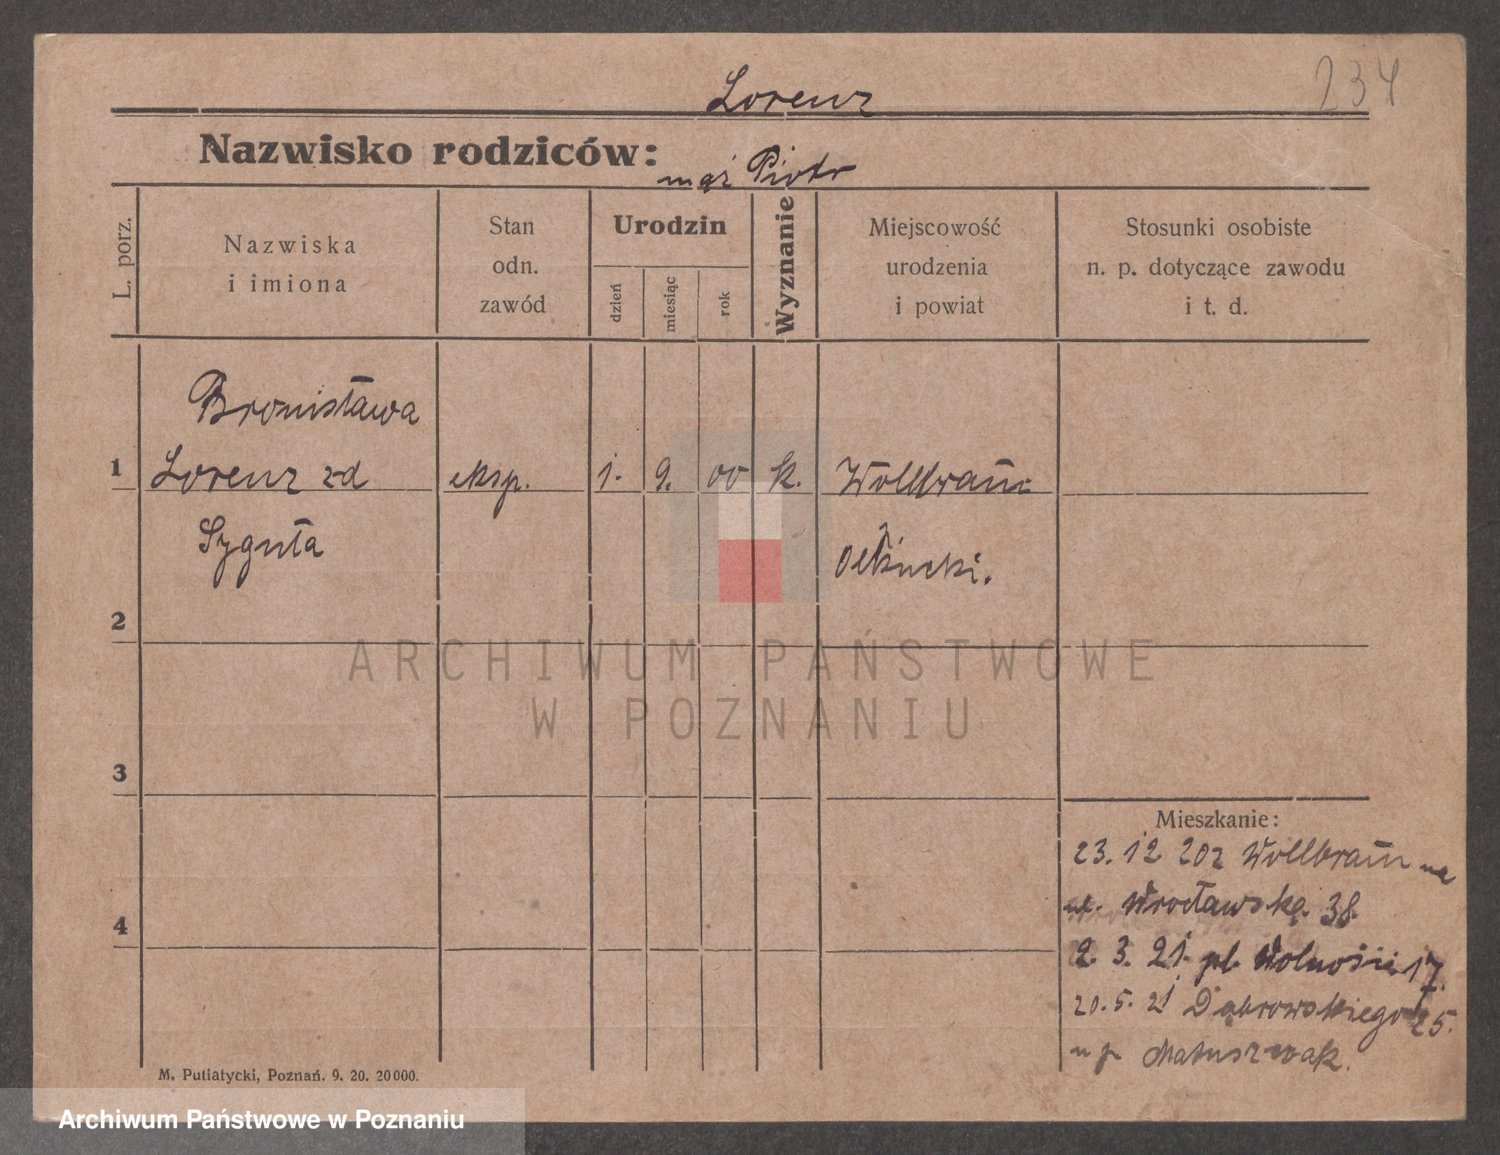 234
Lorenz
Nazwisko rodziców:
mąż Piotr
L. porz.
Nazwiska
i imiona
Stan
odn.
zawód
Urodzin
dzień
miesiąc
rok
Wyznanie
Miejscowość
urodzenia
i powiat
Stosunki osobiste
n. p. dotyczące zawodu
i t. d.
Bronisława
1 Lorenz zd eksp. 1. 9. 00 k. Wollbram
Syguła
2
3
4
Mieszkanie:
23. 12 20 z Wollbram na
ul. Wrocławską 38.
2. 3. 21. pl. Wolności 17.
20. 5. 21 Dąbrowskiego 25.
Matuszwak.
M. Putiatycki, Poznań. 9. 20. 20000.
ARCHIWUM PAŃSTWOWE
W POZNANIU
Archiwum Państwowe w Poznaniu